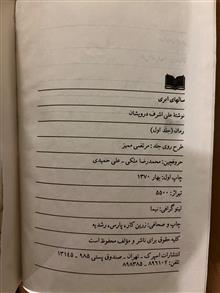 سالهای ابری
نوشتهٔ علی اشرف درویشیان
رمان (جلد اول)
طرح روی جلد: مرتضی ممیز
حروفچین: محمدرضا ملکی - علی حمیدی
چاپ اول: بهار ۱۳۷۰
تیراژ: ۵۵۰۰
لیتوگرافی: نیما
چاپ و صحافی: زرین کار، پارسی، رشدیه
کلیه حقوق برای ناشر و مؤلف محفوظ است
انتشارات اسپرک - تهران - صندوق پستی ۹۸۵ - ۱۳۱۴۵
تلفن: ۸۹۶۱۰۲ - ۸۹۸۳۸۵